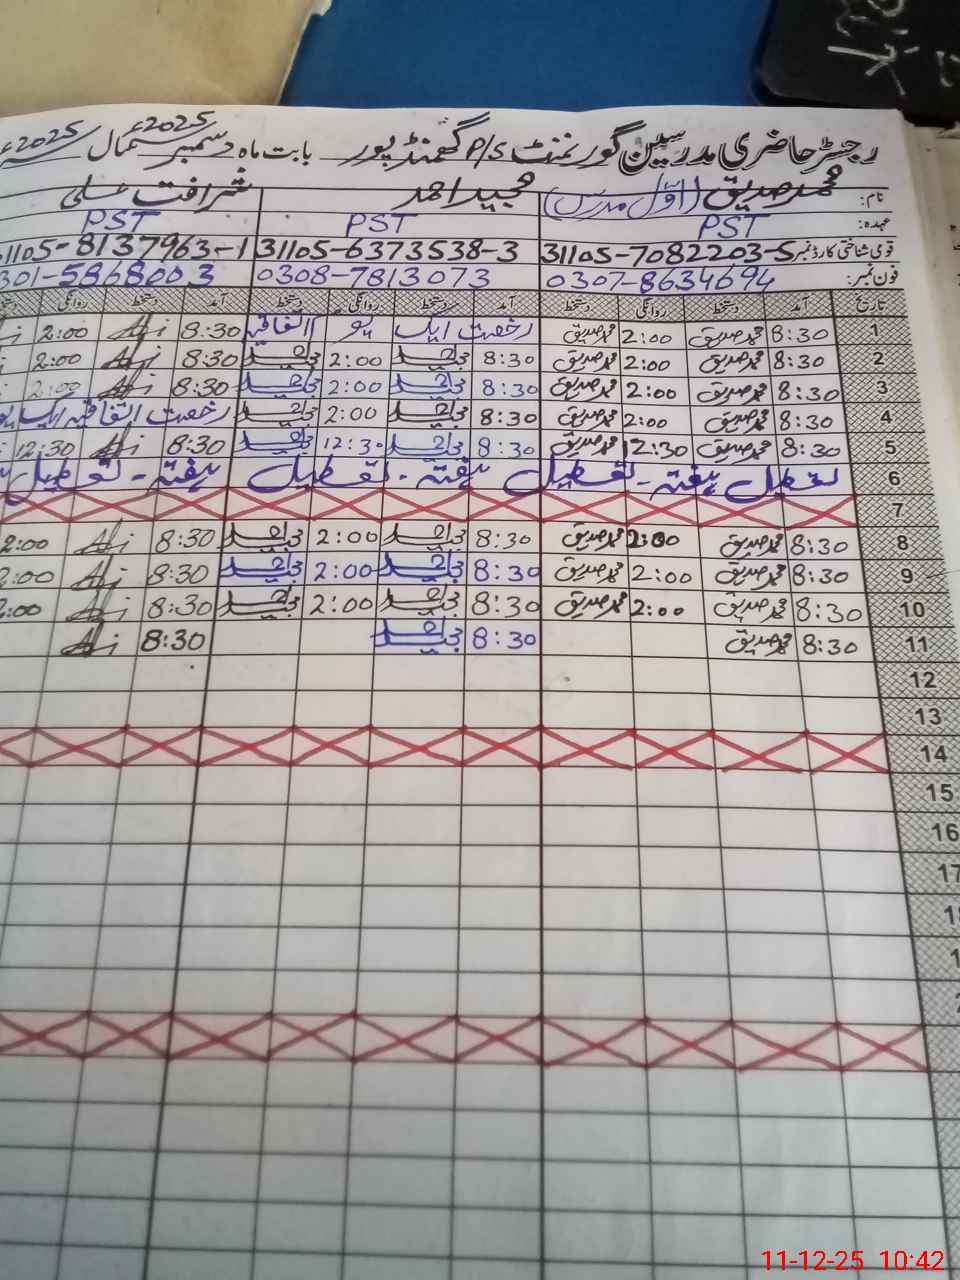 رجسٹر حاضری مدرسین گورنمنٹ P/S گھمنڈ پور بابت ماہ دسمبر 2025ء شمال 2025ء
نام: محمد صدیق (اوّل مدرس) مجید احمد شرافت علی
عہدہ: PST PST PST
قومی شناختی کارڈ نمبر 31105-7082203-5 31105-6373538-3 31105-8137963-1
فون نمبر: 0307-8634694 0308-7813073 0301-5868003
تاریخ آمد دستخط روانگی دستخط آمد دستخط روانگی دستخط آمد دستخط روانگی
1 8:30 محمد صدیق 2:00 محمد صدیق رخصت ایک یو اتفاقیہ 8:30 2:00
2 8:30 محمد صدیق 2:00 محمد صدیق 8:30 2:00 8:30 2:00
3 8:30 محمد صدیق 2:00 محمد صدیق 8:30 2:00 8:30 2:00
4 8:30 محمد صدیق 2:00 محمد صدیق 8:30 2:00 رخصت اتفاقیہ ایک یو
5 8:30 محمد صدیق 12:30 محمد صدیق 8:30 12:30 8:30 12:30
6 تعطیل ہفتہ - تعطیل ہفتہ - تعطیل ہفتہ - تعطیل
7
8 8:30 محمد صدیق 2:00 محمد صدیق 8:30 2:00 8:30 2:00
9 8:30 محمد صدیق 2:00 محمد صدیق 8:30 2:00 8:30 2:00
10 8:30 محمد صدیق 2:00 محمد صدیق 8:30 2:00 8:30 2:00
11 8:30 محمد صدیق 8:30 8:30
12
13
14
15
16
17
11-12-25 10:42